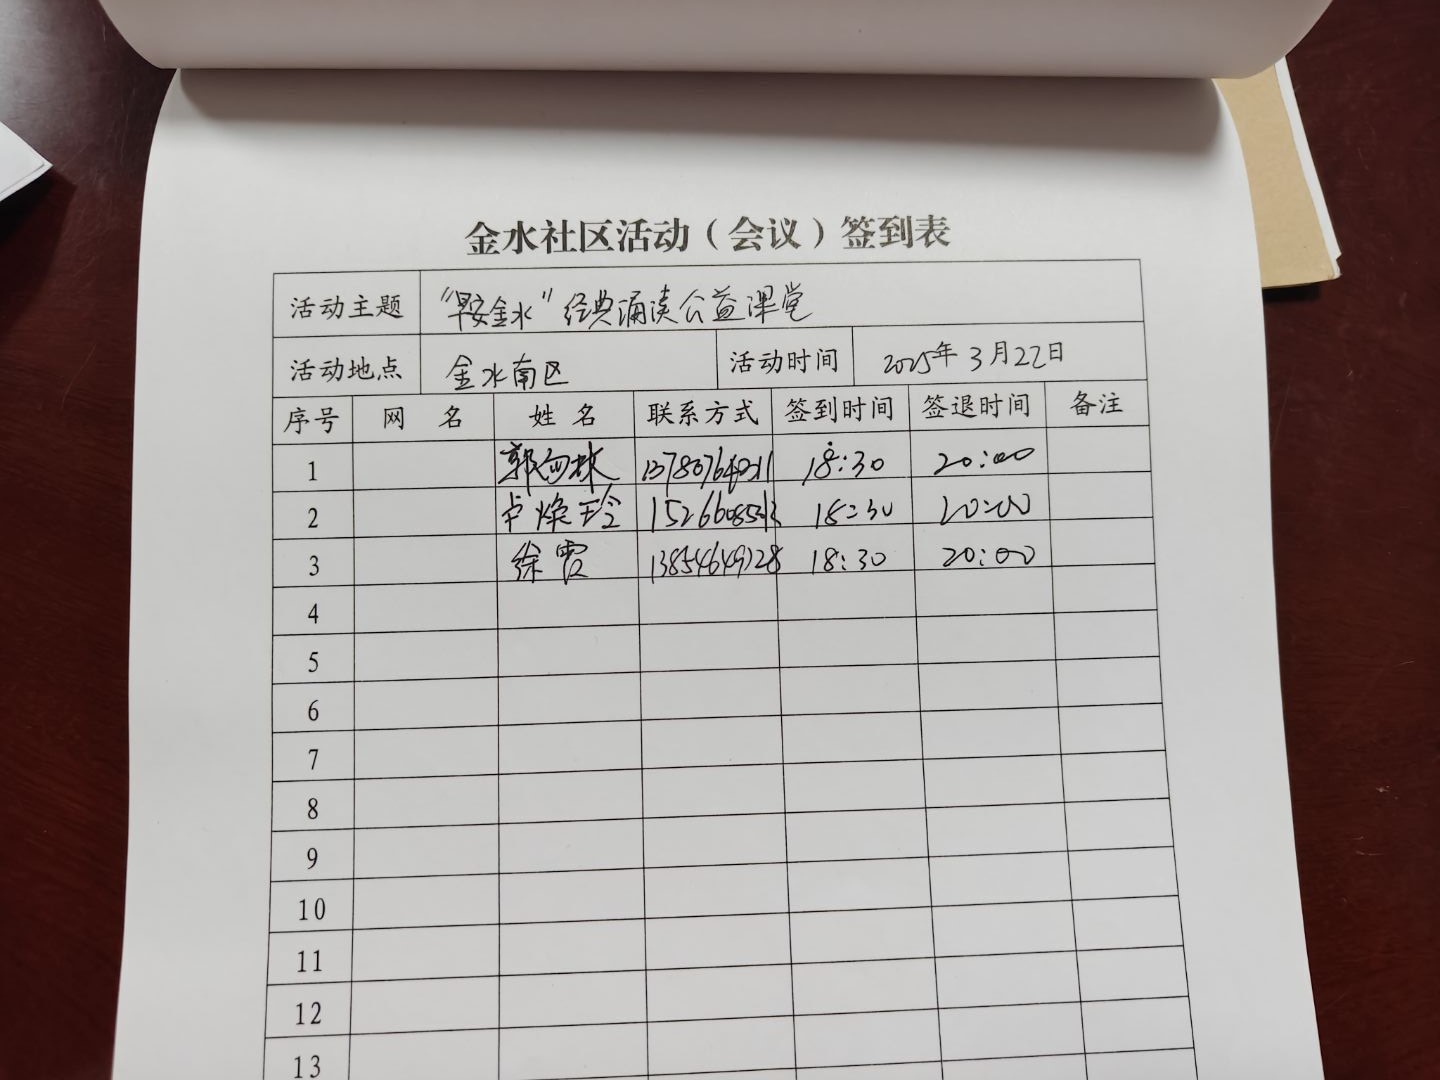 金水社区活动（会议）签到表
活动主题 “早安金水”经典诵读公益课堂
活动地点 金水南区 活动时间 2025年3月22日
序号 网 名 姓 名 联系方式 签到时间 签退时间 备注
1 18:30 20:00
2 卢焕玲 18:30 20:00
3 徐霞 13854649728 18:30 20:00
4
5
6
7
8
9
10
11
12
13